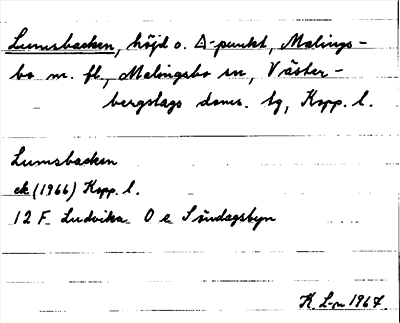 Lumsbacken, höjd o. △-punkt, Malings-
bo m. fl., Malingsbo sn, Väster-
bergslags doms. tg, Kopp. l.
Lumsbacken
ek (1966) Kopp. l.
12 F Ludvika 0 e Söndagsbyn
K. L-n 1967.